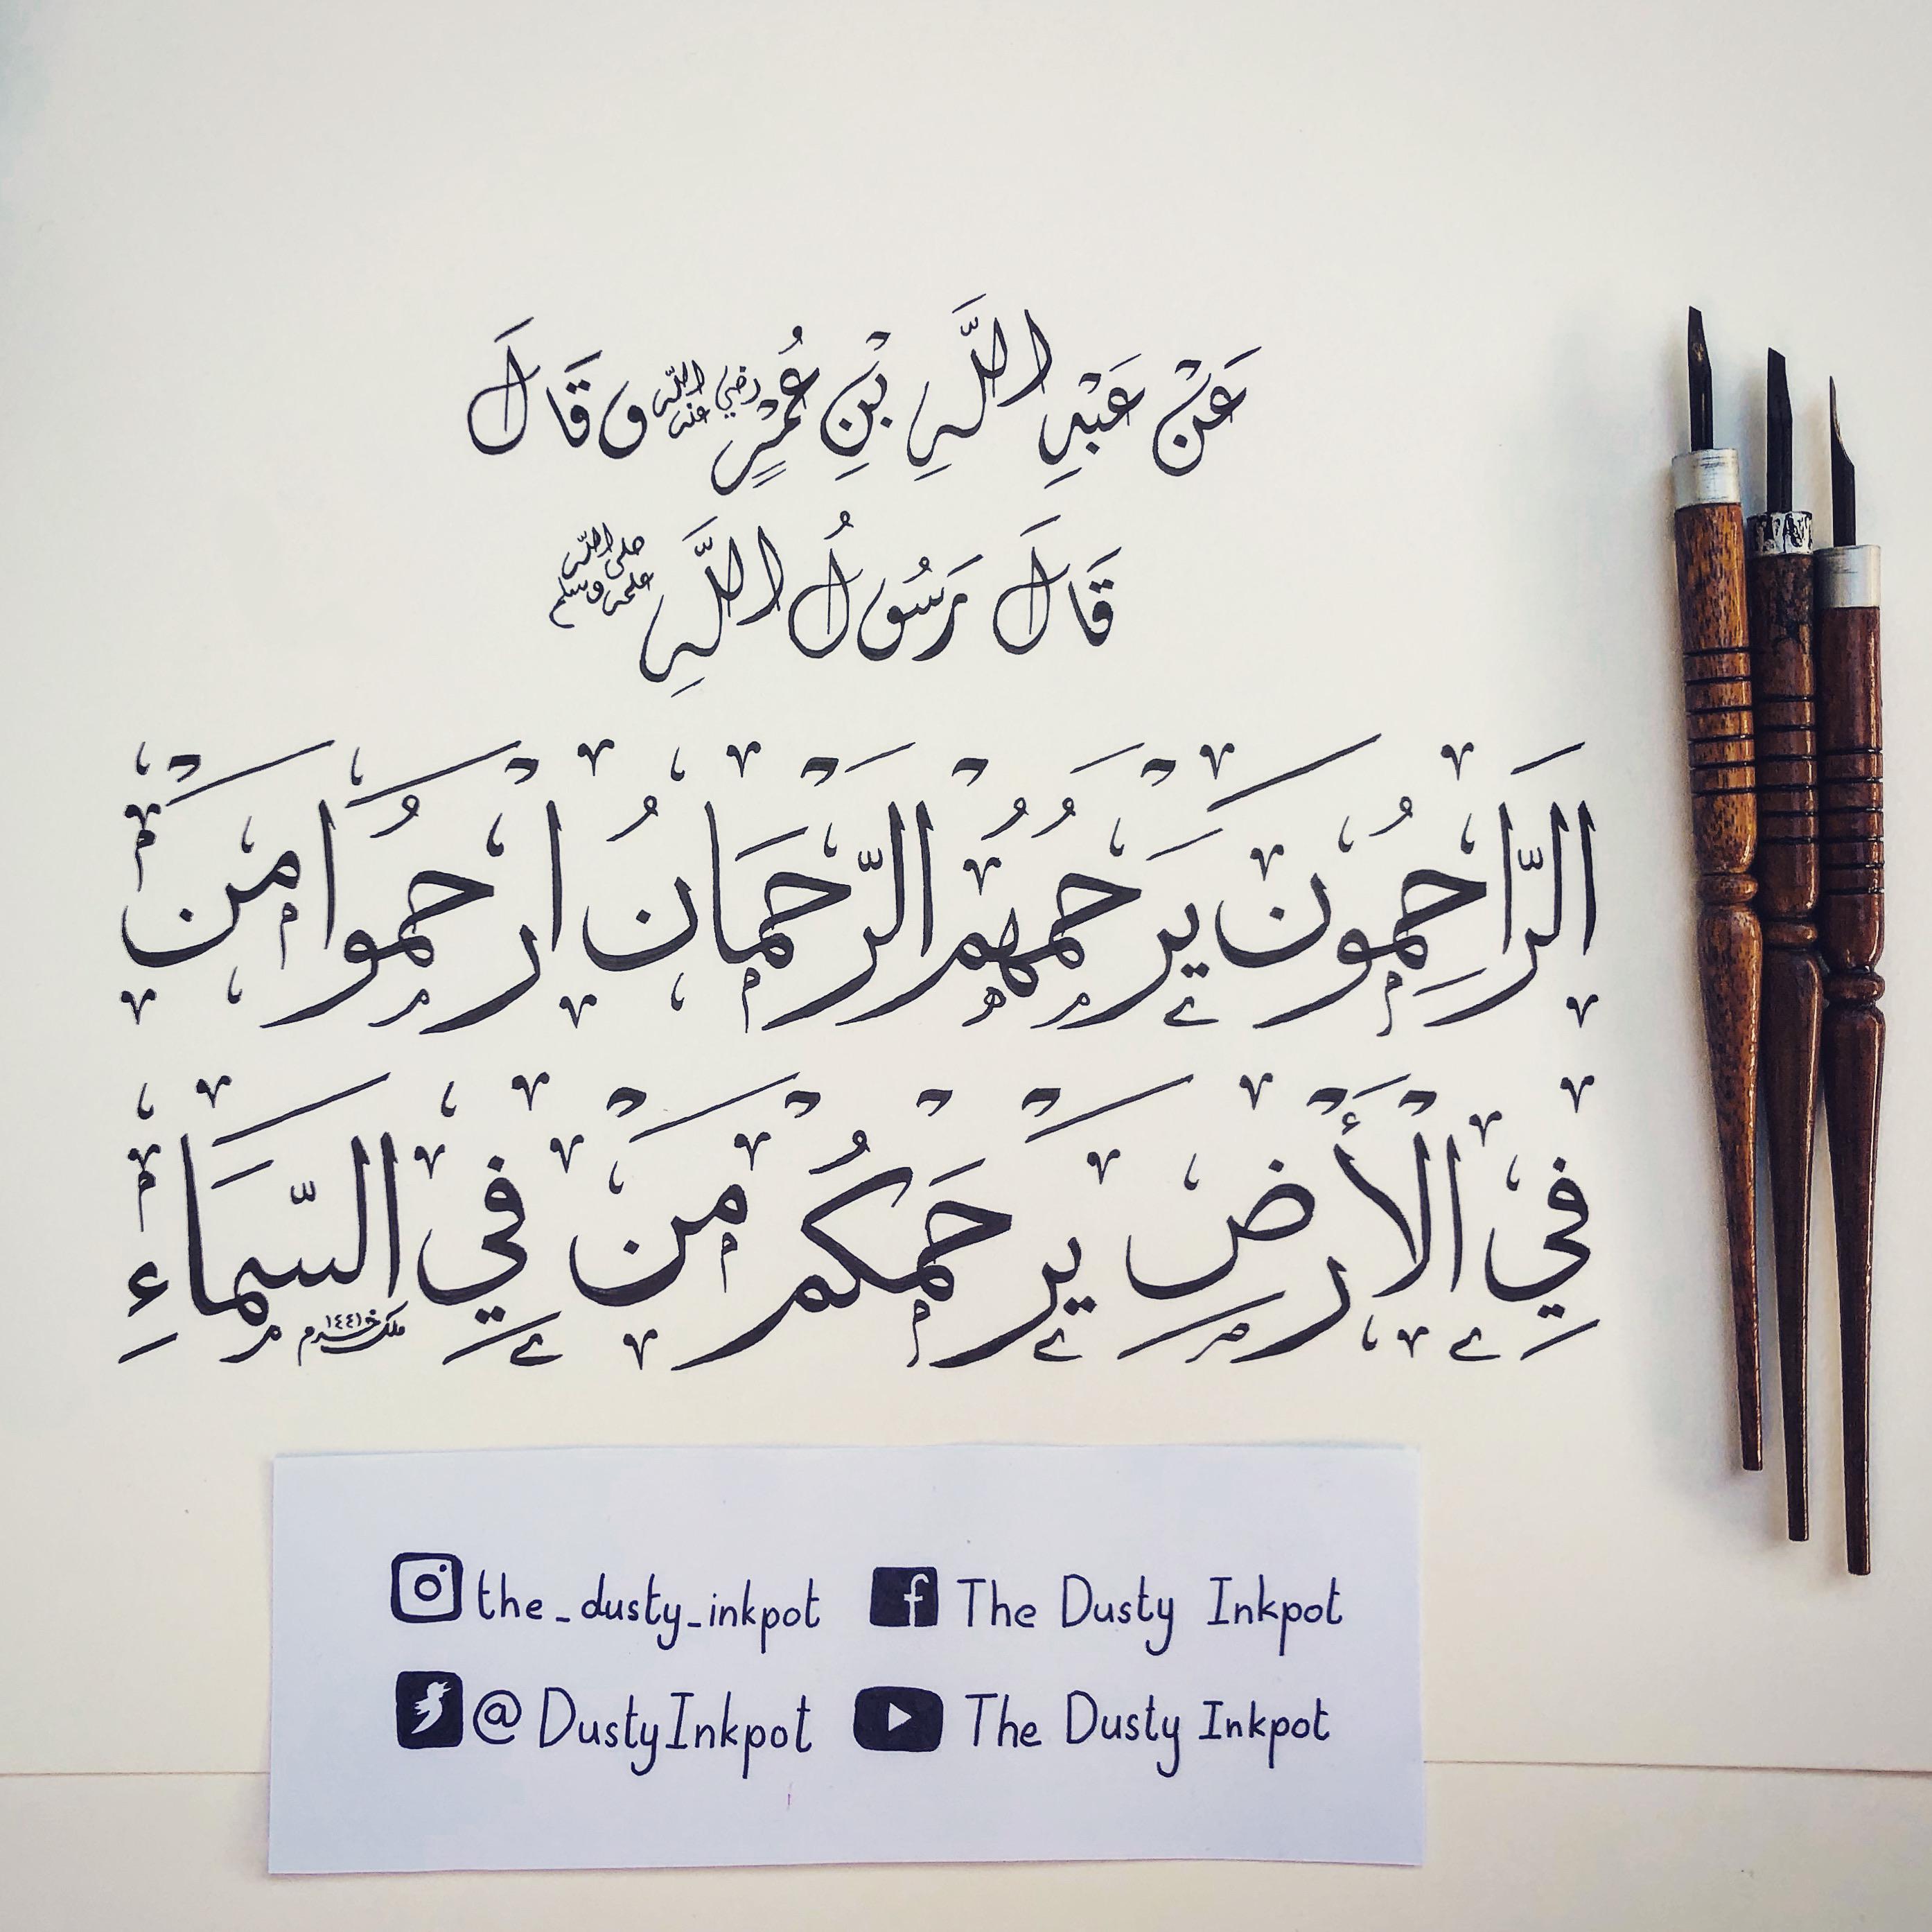 عَنْ عَبْدِ اللَّهِ بْنِ عُمَرٍ رضي الله عنه و قَالَ
قَالَ رَسُولُ اللَّهِ صلى الله عليه وسلم
الرَّاحِمُونَ يَرْحَمُهُمُ الرَّحْمَانُ ارْحَمُوا مَنْ
فِي الْأَرْضِ يَرْحَمْكُمْ مَنْ فِي السَّمَاءِ
ملك خرم ١٤٤١
the_dusty_inkpot The Dusty Inkpot
@DustyInkpot The Dusty Inkpot